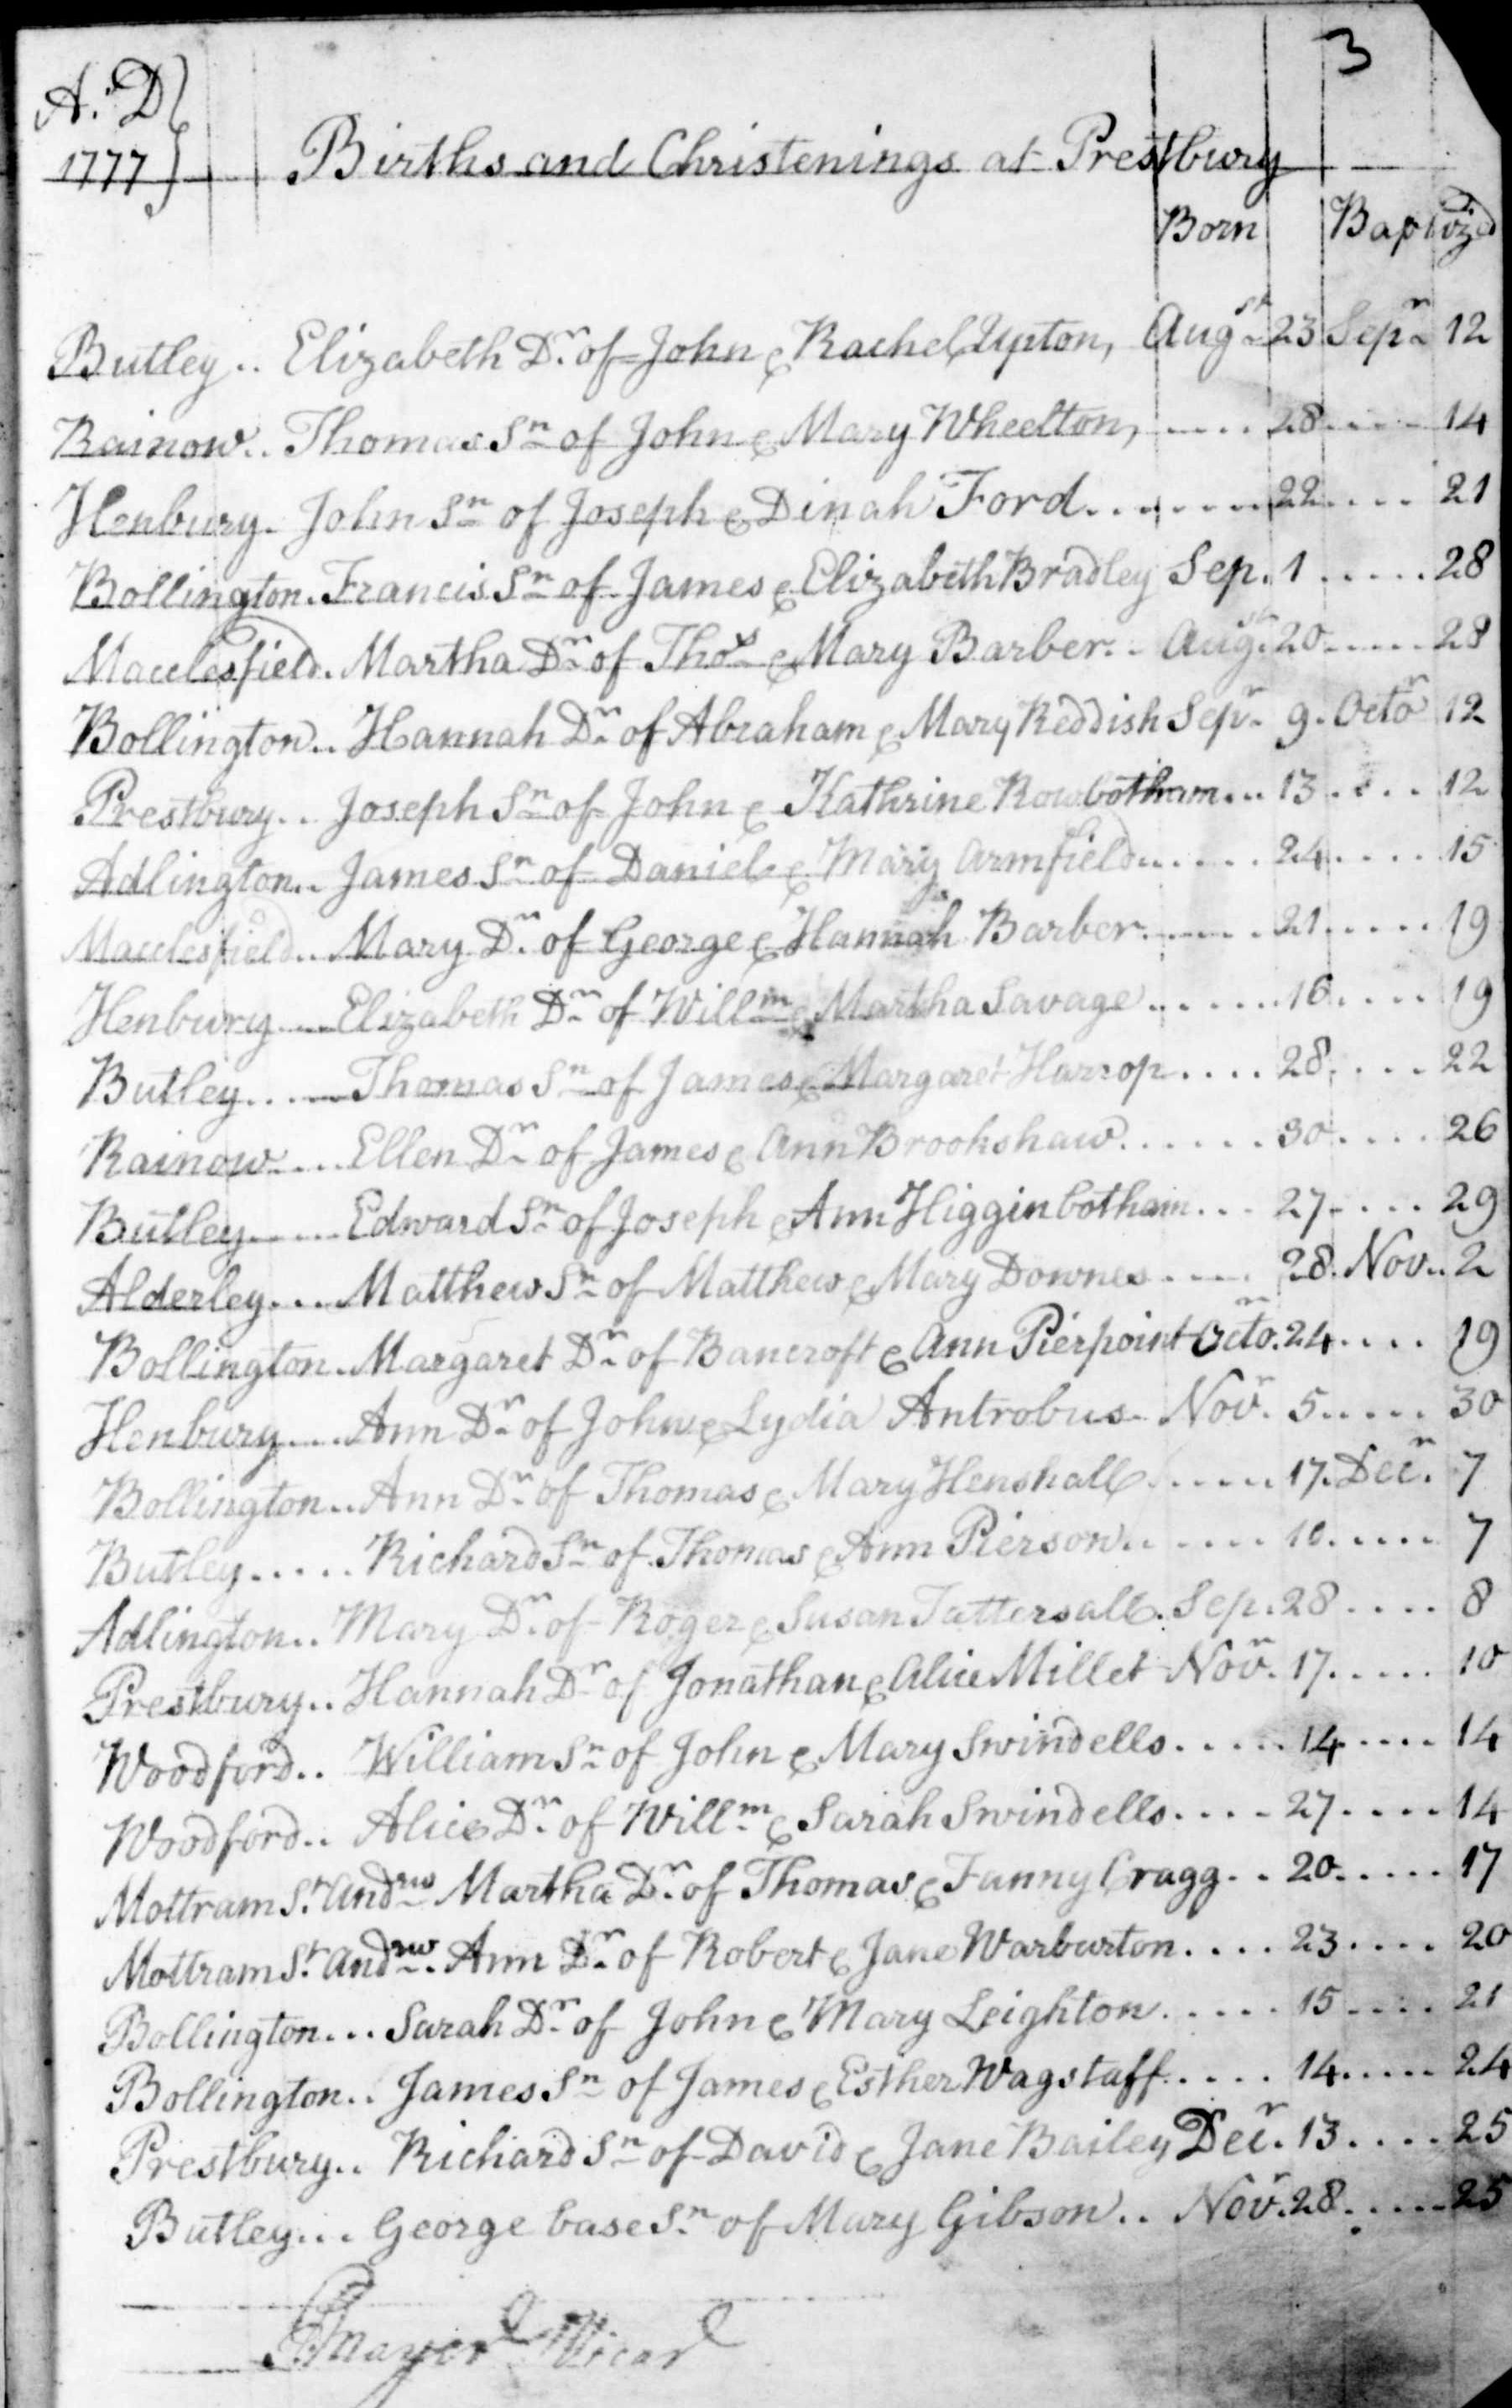 3
A.D
1777 Births and Christenings at Prestbury
Born Baptized
Butley.. Elizabeth Dr. of John & Rachel Upton, Augst 23 Sepr 12
Rainow.. Thomas Sn of John & Mary Wheelton, .... 28 .... 14
Henbury. John Sn of Joseph & Dinah Ford ....... 22 .... 21
Bollington. Francis Sn of James & Elizabeth Bradley Sep. 1 ..... 28
Macclesfield. Martha Dr of Thos & Mary Barber.. Augst. 20 ..... 28
Bollington.. Hannah Dr of Abraham & Mary Reddish Sepr 9. Octor 12
Prestbury.. Joseph Sn of John & Kathrine Rowbotham... 13 ... 12
Adlington.. James Sn of Daniel & Mary Armfield ..... 24 .... 15
Macclesfield.. Mary Dr. of George & Hannah Barber ..... 21 ..... 19
Henbury .... Elizabeth Dr of Willm & Martha Savage ...... 16 .... 19
Butley ..... Thomas Sn of James & Margaret Harrop .... 28 .... 22
Rainow .... Ellen Dr of James & Ann Brookshaw ...... 30 .... 26
Butley ..... Edward Sn of Joseph & Ann Higginbotham ... 27 .... 29
Alderley .... Matthew Sn of Matthew & Mary Downes .... 28. Nov.. 2
Bollington. Margaret Dr of Bancroft & Ann Pierpoint Octor. 24 .... 19
Henbury .... Ann Dr of John & Lydia Antrobus Novr. 5 ..... 30
Bollington.. Ann Dr of Thomas & Mary Henshall ..... 17. Decr. 7
Butley ..... Richard Sn of Thomas & Ann Pierson ...... 10 ..... 7
Adlington.. Mary Dr. of Roger & Susan Tattersall. Sep. 28 .... 8
Prestbury.. Hannah Dr of Jonathan & Alice Millet Novr. 17 ..... 10
Woodford.. William Sn of John & Mary Swindells ..... 14 .... 14
Woodford.. Alice Dr of Willm & Sarah Swindells .... 27 .... 14
Mottram St. Andrw Martha Dr. of Thomas & Fanny Cragg .. 20 ..... 17
Mottram St. Andrw. Ann Dr of Robert & Jane Warburton .... 23 .... 20
Bollington... Sarah Dr of John & Mary Leighton ..... 15 .... 21
Bollington.. James Sn of James & Esther Wagstaff ..... 14 ..... 24
Prestbury.. Richard Sn of David & Jane Bailey Decr. 13 .... 25
Butley... George base Sn of Mary Gibson .. Novr. 28 ..... 25
Mayer Vicar